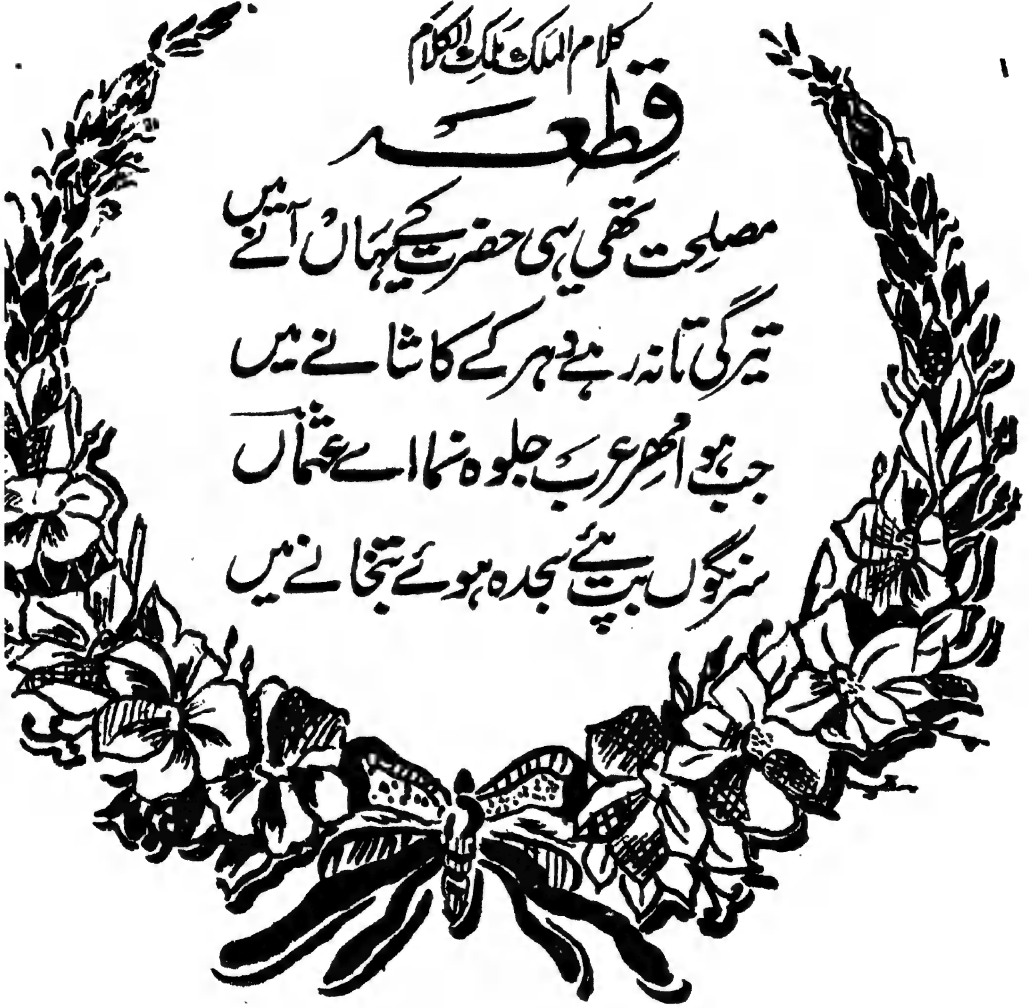 کلام الملک ملک الکلام
قطعہ
مصلحت تھی یہی حضرت کے یہاں آنے میں
تیرگی تا نہ رہے دہر کے کاشانے میں
جب ہوا مہر عرب جلوہ نما اے عثماںؔ
سرنگوں بت پئے سجدہ ہوئے بتخانے میں